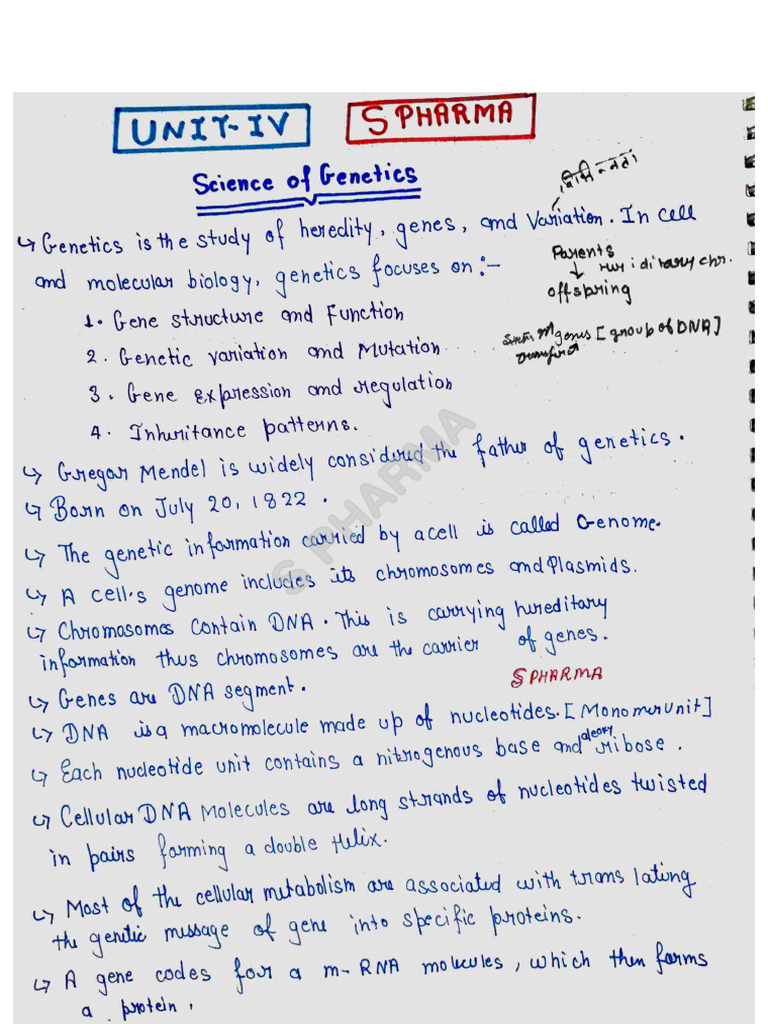 UNIT-IV
S PHARMA
Science of Genetics
↳ Genetics is the study of heredity, genes, and Variation. In cell
and molecular biology, genetics focuses on:-
Parents
↓
offspring
1. Gene structure and Function
2. Genetic variation and Mutation
genes [group of DNA]
3. Gene Expression and regulation
4. Inheritance patterns.
↳ Gregar Mendel is widely considered the father of genetics.
↳ Born on July 20, 1822.
↳ The genetic information carried by a cell is called Genome.
↳ A cell's genome includes its chromosomes and Plasmids.
↳ Chromosomes contain DNA. This is carrying hereditary
information thus chromosomes are the carrier of genes.
S PHARMA
↳ Genes are DNA segment.
↳ DNA is a macromolecule made up of nucleotides. [Monomer unit]
↳ Each nucleotide unit contains a nitrogenous base and deoxy ribose.
↳ Cellular DNA Molecules are long strands of nucleotides twisted
in pairs forming a double Helix.
↳ Most of the cellular metabolism are associated with trans lating
the genetic message of gene into specific proteins.
↳ A gene codes for a m-RNA molecules, which then forms
a protein.
S PHARMA